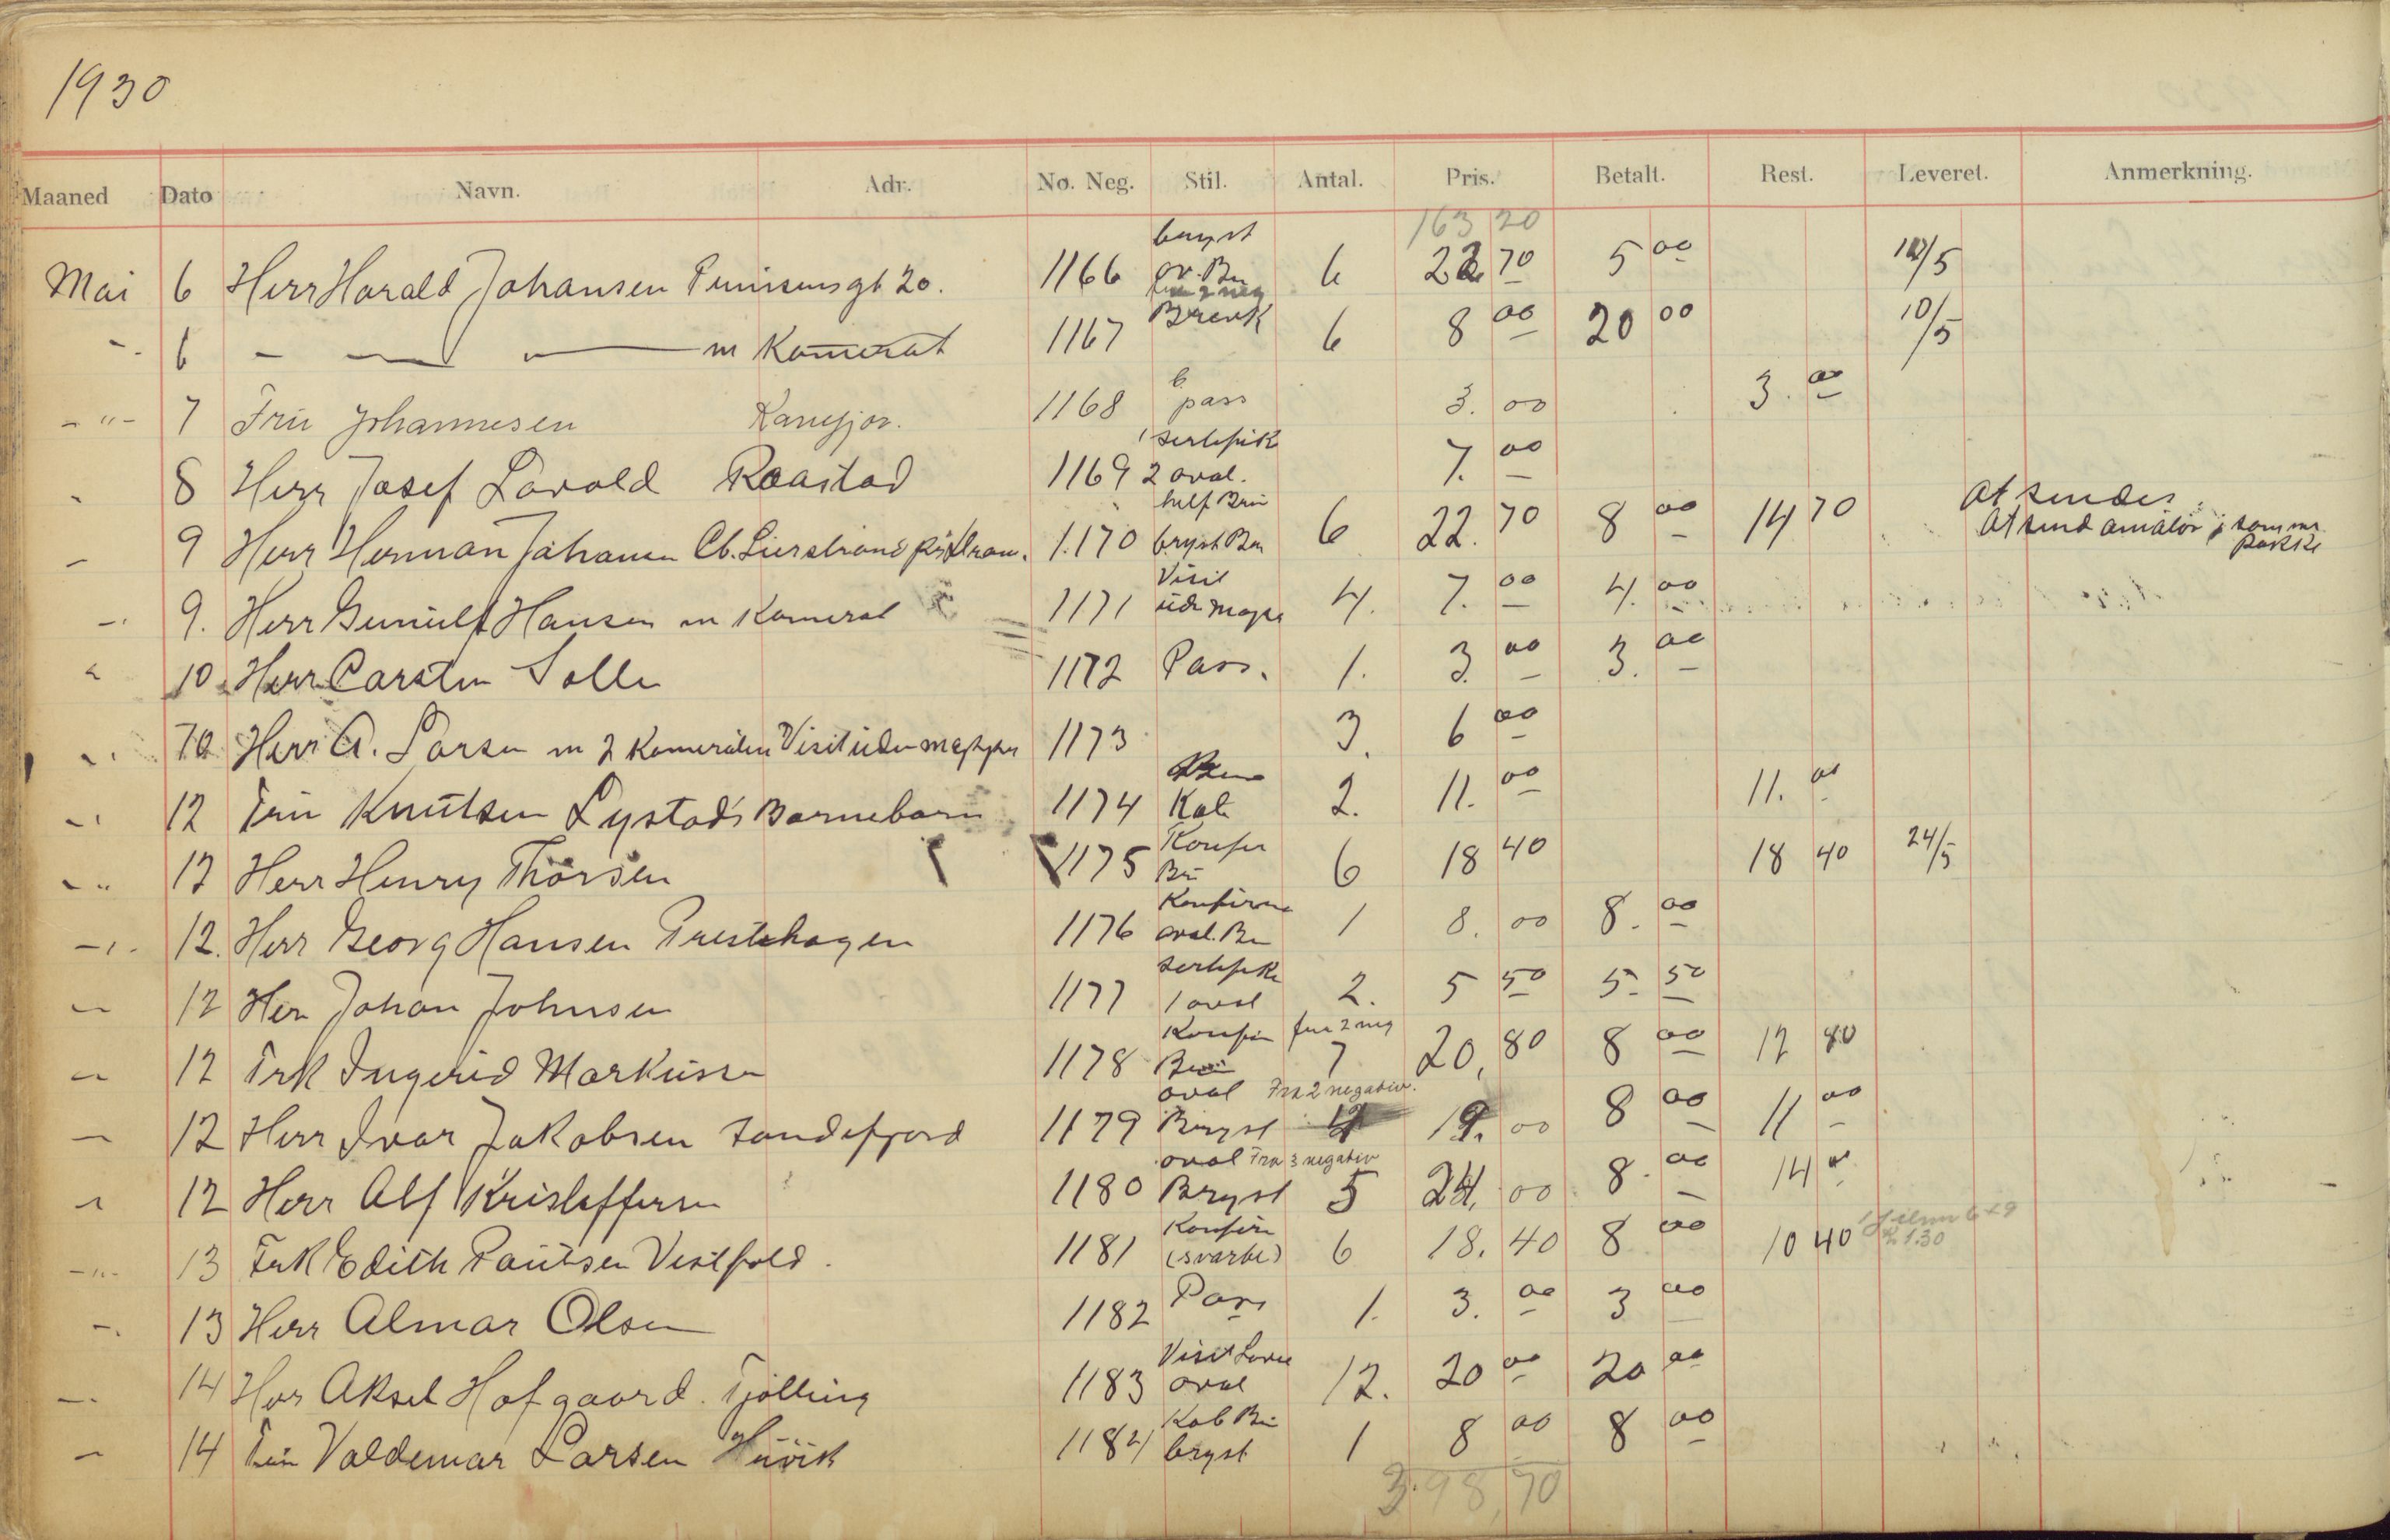 1930
Maaned Dato Navn. Adr. No. Neg. Stil. Antal. Pris. Betalt. Rest. Leveret. Anmerkning.
163 20
bryst
Mai 6 Herr Harald Johansen gt 20. 1166 ov. Bu 6 22 70 5 00 10/5
6 — — — m Kamerat 1167 6 8 00 20 00 10/5
6
-"- 7 Fru Johannesen 1168 pass 3. 00 3. 00
1 sertifik
8 Herr Josef Lavold Raastad 1169 2 oval. 7. 00
At sendes
helf Brun
9 Herr Herman Johansen 1170 bryst Bru 6 22. 70 8 00 14 70 At send amatør i samme pakke
Visit
9. Herr Gunulf Hansen m Kamerat 1171 4. 7. 00 4. 00
10 Herr Carsten Solli 1172 Pass. 1. 3 00 3. 00
10 Herr A. Larsen m 2 Kamerater Visit uden mapper 1173 3. 6 00
12 Fru Knutsen Lystad's Barnebarn 1174 Kab 2. 11. 00 11. 00
Konfir
12 Herr Henry Thorsen 1175 Br 6 18 40 18 40 24/5
Konfirm
12. Herr Georg Hansen Prestehagen 1176 oval. Br 1 8. 00 8. 00
sertifik
12 Herr Johan Johnsen 1177 1 oval 2. 5 50 5. 50
Konfir fra 2 neg
12 Frk Ingerid Markussen 1178 Brun 7 20, 80 8 00 12 80
oval Fra 2 negativ.
12 Herr Ivar Jakobsen Sandefjord 1179 Bryst 4 19. 00 8 00 11 00
oval Fra 3 negativ
12 Herr Alf Kristoffersen 1180 Bryst 5 24. 00 8. 00 14 00
Konfir
-"- 13 Frk Edith Paulsen Vestfold. 1181 (svarte) 6 18. 40 8 00 10 40 1 film 6x9
1.30
13 Herr Almar Olsen 1182 Pass 1. 3. 00 3 00
Visit
14 Herr Aksel Hofgaard. Tjølling 1183 oval 12. 20 00 20 00
Kab Br
14 Fru Valdemar Larsen 1184 bryst 1 8 00 8 00
398,70